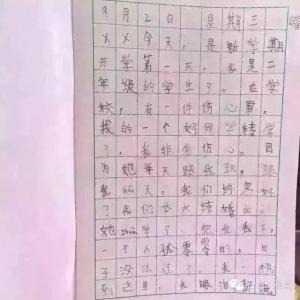 9月2日 是期三
XX今天，是新学期
开学第一天，我是二
年级的学生了。在学
校，有一件伤心事。
我的一个好同学转学
了，我非常伤心。因
为她每天跟我玩，跟
我聊天，我们约定好
了我们长大结婚
她zhuan学了，把我丢下，
一个人孤零零的。日
子没法过了！我想
到这里，我眼泪都流